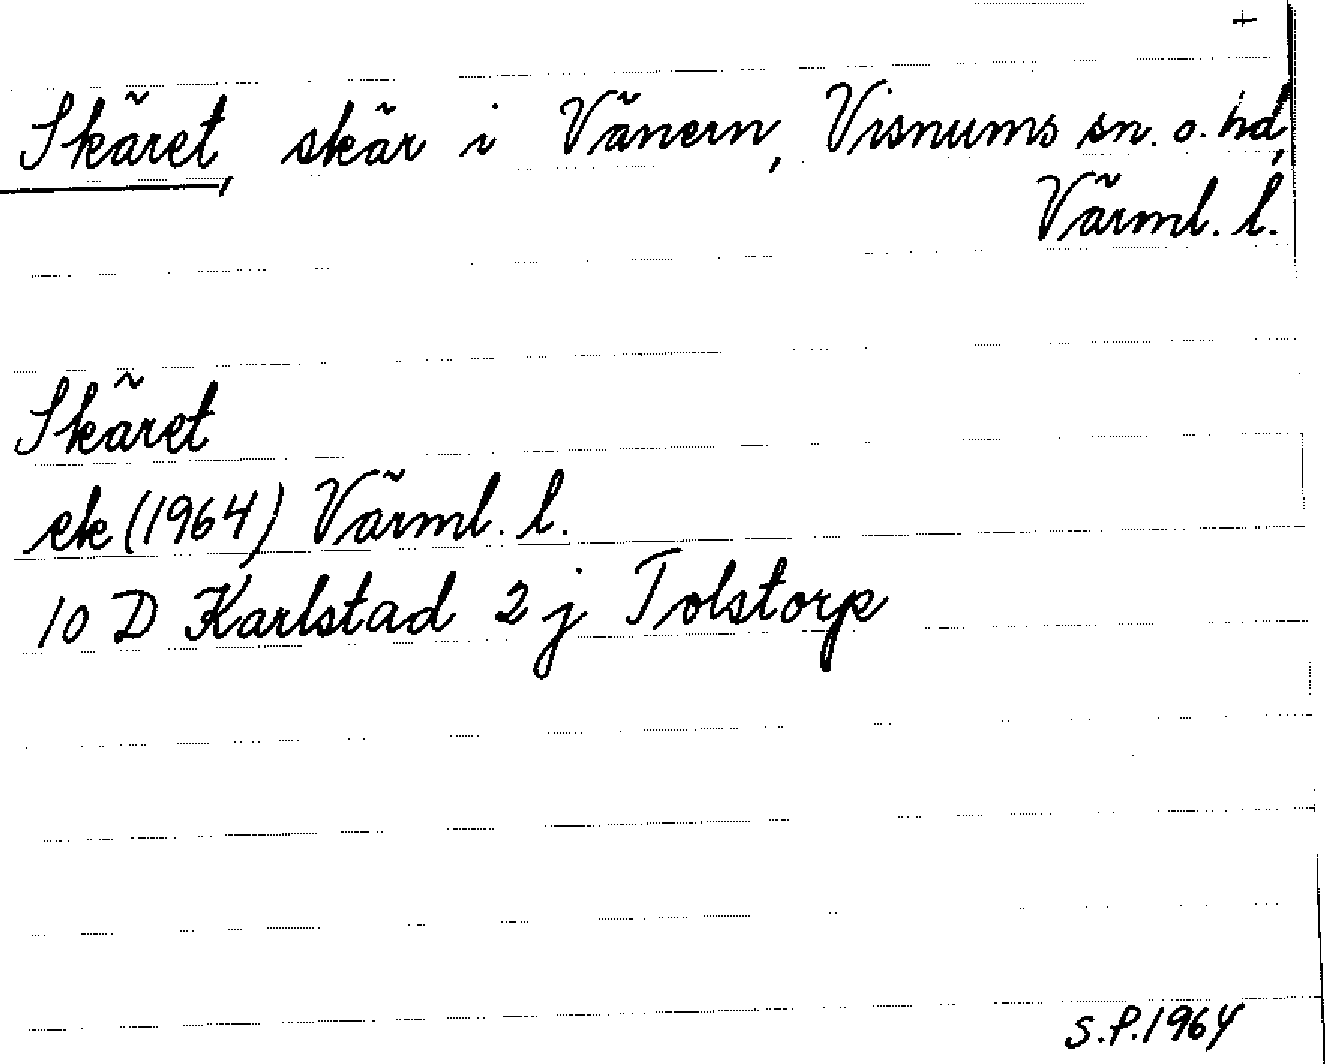 +
Skäret, skär i Vänern, Visnums sn. o. hd,
Värml. l.
Skäret
ek (1964) Värml. l.
10 D Karlstad 2 j Tolstorp
S.P. 1964